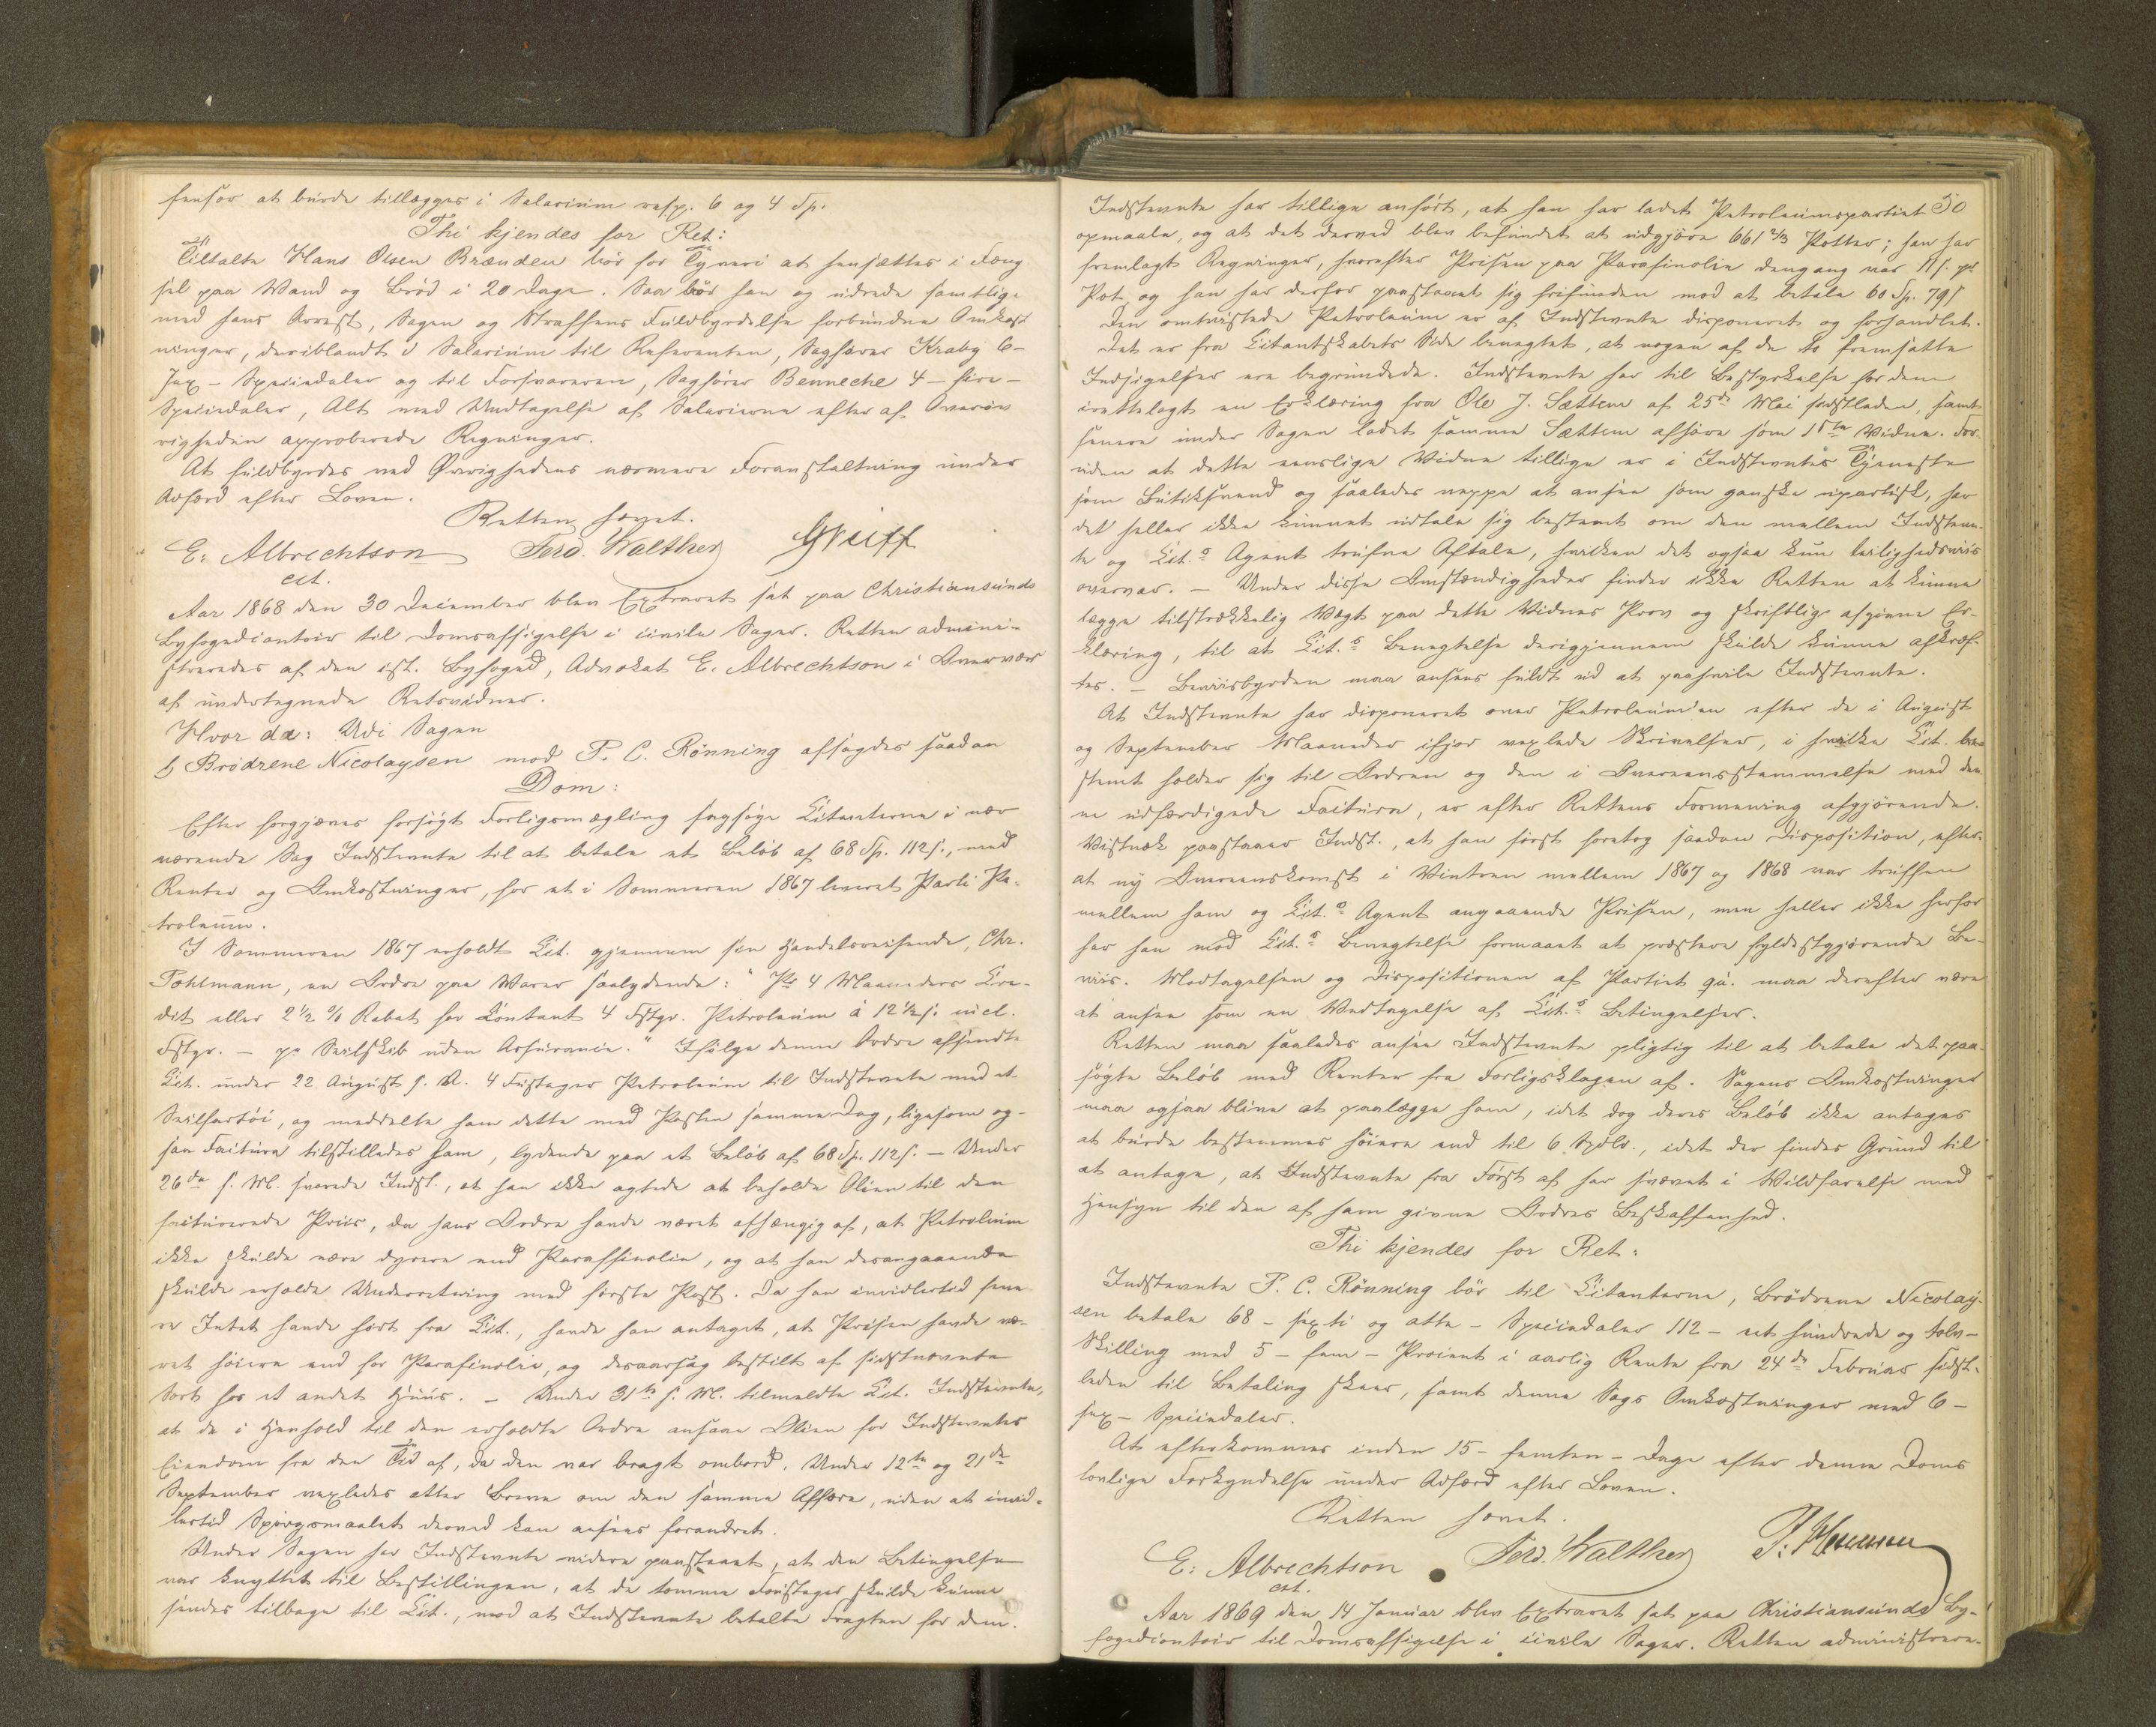 fensor at burde tillægges i Salarium resp. 6 og 4 Sp.
Thi kjendes for Ret:
Tiltalte Hans Olsen Brænden bør for Tyveri at hensættes i Fæng
sel paa Vand og Brød i 20 Dage. Saa bør han og udrede samtlige
med hans Arrest, Sagen og Straffens Fuldbyrdelse forbundne Omkost
ninger, deriblandt i Salarium til Referenten, Sagfører Kraby 6 –
sex – Speciedaler og til Forsvareren, Sagfører Benneche 4 – fire –
Speciedaler, Alt med Undtagelse af Salarierne efter af Overøv
righeden approberede Regninger.
At fuldbyrdes ved Øvrighedens nærmere Foranstaltning under
Adfærd efter Loven.
Retten hævet.
E: Albrechtson Ferd. Walther
cst.
Aar 1868 den 30 December blev Extraret sat paa Christiansunds
Byfogedcontoir til Domsafsigelse i civile Sager. Retten admini-
streredes af den cst. Byfoged, Advokat E. Albrechtson i Overvær
af undertegnede Retsvidner.
Hvor da: Udi Sagen
Brødrene Nicolaysen mod P. C. Rønning afsagdes saadan
Dom:
Efter forgjæves forsøgt Forligsmægling sagsøge Citanterne i nær
værende Sag Indstevnte til at betale et Beløb af 68 Sp. 112 s., med
Renter og Omkostninger, for et i Sommeren 1867 leveret Parti Pe-
troleum.
I Sommeren 1867 erholdt Cit. gjennem sin Handelsreisende, Chr.
Pohlmann, en Ordre paa Varer saalydende: "Pr 4 Maaneders Cre-
dit eller 2 1/2 % Rabat for Contant 4 Fstgr. Petroleum à 12 1/2 s. incl.
Fstgr. – pr Seilskib uden Assurance." Ifølge denne Ordre afsendte
Cit. under 22 August s. A. 4 Fustager Petroleum til Indstevnte med et
Seilfartøi, og meddelte ham dette med Posten samme Dag, ligesom og-
saa Factura tilstilledes ham, lydende paa et Beløb af 68 Sp. 112 s. – Under
26de s. M. svarede Indst., at han ikke agtede at beholde Olien til den
facturerede Priis, da hans Ordre havde været afhængig af, at Petroleum
ikke skulde være dyrere end Paraffinolie, og at han desangaaende
skulde erholde Underretning med første Post. Da han imidlertid sene-
re Intet havde hørt fra Cit., havde han antaget, at Prisen havde væ-
ret høiere end for Parafinolie, og desaarsag bestilt af sidstnævnte
Sort hos et andet Huus. – Under 31te s. M. tilmeldte Cit. Indstevnte,
at de i Henhold til den erholdte Ordre ansaae Olien for Indstevntes
Eiendom fra den Tid af, da den var bragt ombord. Under 12te og 21de
September vexledes atter Breve om den samme Affære, uden at imid-
lertid Spørgsmaalet derved kan ansees forandret.
Under Sagen har Indstevnte videre paastaaet, at den Betingelse
var knyttet til Bestillingen, at de tomme Foustager skulde kunne
sendes tilbage til Cit., mod at Indstevnte betalte Fragten for dem.
50
Indstevnte har tillige anført, at han har ladet Petroleumspartiet
opmaale, og at det derved blev befundet at udgjøre 661 2/3 Potter; han har
fremlagt Regninger, hvorefter Prisen paa Parafinolie dengang var 11 s. pr
Pot, og han har derfor paastaaet sig frifunden mod at betale 60 Sp. 79 s
Den omtvistede Petroleum er af Indstevnte disponeret og forhandlet.
Det er fra Citantskabets Side benegtet, at nogen af de to fremsatte
Indsigelser ere begrundede. Indstevnte har til Bestyrkelse for dem
irettelagt en Erklæring fra Ole J. Sættem af 25de Mai sidstleden, samt
senere under Sagen ladet samme Sættem afhøre som 1ste Vidne. For-
uden at dette eenslige Vidne tillige er i Indstevntes Tjeneste
som Butiksvend og saaledes neppe at ansee som ganske upartisk, har
det heller ikke kunnet udtale sig bestemt om den mellem Indstevn-
te og Cit.s Agent trufne Aftale, hvilken det ogsaa kun leilighedsviis
overvar. – Under disse Omstændigheder finder ikke Retten at kunne
lægge tilstrækkelig Vægt paa dette Vidnes Prov og skriftlig afgivne Er-
klæring, til at Cit.s Benegtelse derigjennem skulde kunne afkræf-
tes. – Beviisbyrden maa ansees fuldt ud at paahvile Indstevnte.
At Indstevnte har disponeret over Petroleum'en efter de i August
og September Maaneder ifjor vexlede Skrivelser, i hvilke Cit. be-
stemt holder sig til Ordren og den i Overeensstemmelse med den-
ne udfærdigede Factura, er efter Rettens Formening afgjørende.
Vistnok paastaaer Indst., at han først foretog saadan Disposition, efter-
at ny Overeenskomst i Vintren mellem 1867 og 1868 var truffen
mellem ham og Cit.s Agent angaaende Prisen, men heller ikke herfor
har han mod Cit.s Benegtelse formaaet at præstere fyldestgjørende Be-
viis. Modtagelsen og Dispositionen af Partiet qu. maa derefter være
at ansee som en Vedtagelse af Cit.s Betingelser.
Retten maa saaledes ansee Indstevnte pligtig til at betale det paa-
søgte Beløb med Renter fra Forligsklagen af. Sagens Omkostninger
maa ogsaa blive at paalægge ham, idet dog deres Beløb ikke antages
at burde bestemmes høiere end til 6 Spdlr., idet der findes Grund til
at antage, at Indstevnte fra Først af har svævet i Vildfarelse med
Hensyn til den af ham givne Ordres Beskaffenhed.
Thi kjendes for Ret:
Indstevnte P. C. Rønning bør til Citanterne, Brødrene Nicolay-
sen betale 68 – sexti og otte – Speciedaler 112 – eet hundrede og tolv –
Skilling med 5 – fem – Procent i aarlig Rente fra 24de Februar sidst-
leden til Betaling skeer, samt denne Sags Omkostninger med 6 –
sex – Speciedaler.
At efterkommes inden 15 – femten – Dage efter denne Doms
lovlige Forkyndelse under Adfærd efter Loven.
Retten hævet.
E: Albrechtson Ferd. Walther
cst.
Aar 1869 den 14 Januar blev Extraret sat paa Christiansunds By-
fogedcontoir til Domsafsigelse i civile Sager. Retten administrere-